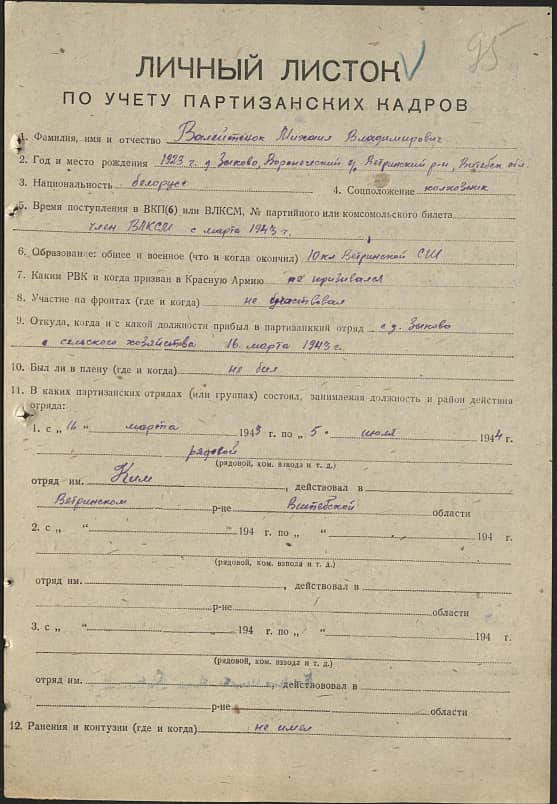 95
ЛИЧНЫЙ ЛИСТОК V
ПО УЧЕТУ ПАРТИЗАНСКИХ КАДРОВ
1. Фамилия, имя и отчество Валейтенок Михаил Владимирович
2. Год и место рождения 1923 г. д. Зыково, Вороничский с/с, Ветринский р-н, Витебск обл.
3. Национальность белорус 4. Соцположение колхозник
5. Время поступления в ВКП(б) или ВЛКСМ, № партийного или комсомольского билета
член ВЛКСМ с марта 1943 г.
6. Образование: общее и военное (что и когда окончил) 10 кл Ветринской СШ
7. Каким РВК и когда призван в Красную Армию не призывался
8. Участие на фронтах (где и когда) не участвовал
9. Откуда, когда и с какой должности прибыл в партизанский отряд с д. Зыково
с сельского хозяйства 16 марта 1943 г.
10. Был ли в плену (где и когда) не был
11. В каких партизанских отрядах (или группах) состоял, занимаемая должность и район действия
отряда:
1. с „ 16 “ марта 1943 г. по „ 5 “ июля 1944 г.
рядовой
(рядовой, ком. взвода и т. д.)
отряд им. Ким, действовал в
Ветринском р-не Витебской области
2. с „ “ 194 г. по „ “ 194 г.
(рядовой, ком. взвода и т. д.)
отряд им. , действовал в
р-не области
3. с „ “ 194 г. по „ “ 194 г.
(рядовой, ком. взвода и т. д.)
отряд им. действовал в
р-не области
12. Ранения и контузии (где и когда) не имел